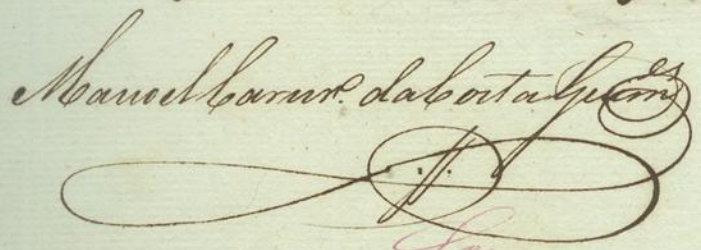 Manoel Carnr.o da Costa Guim.es